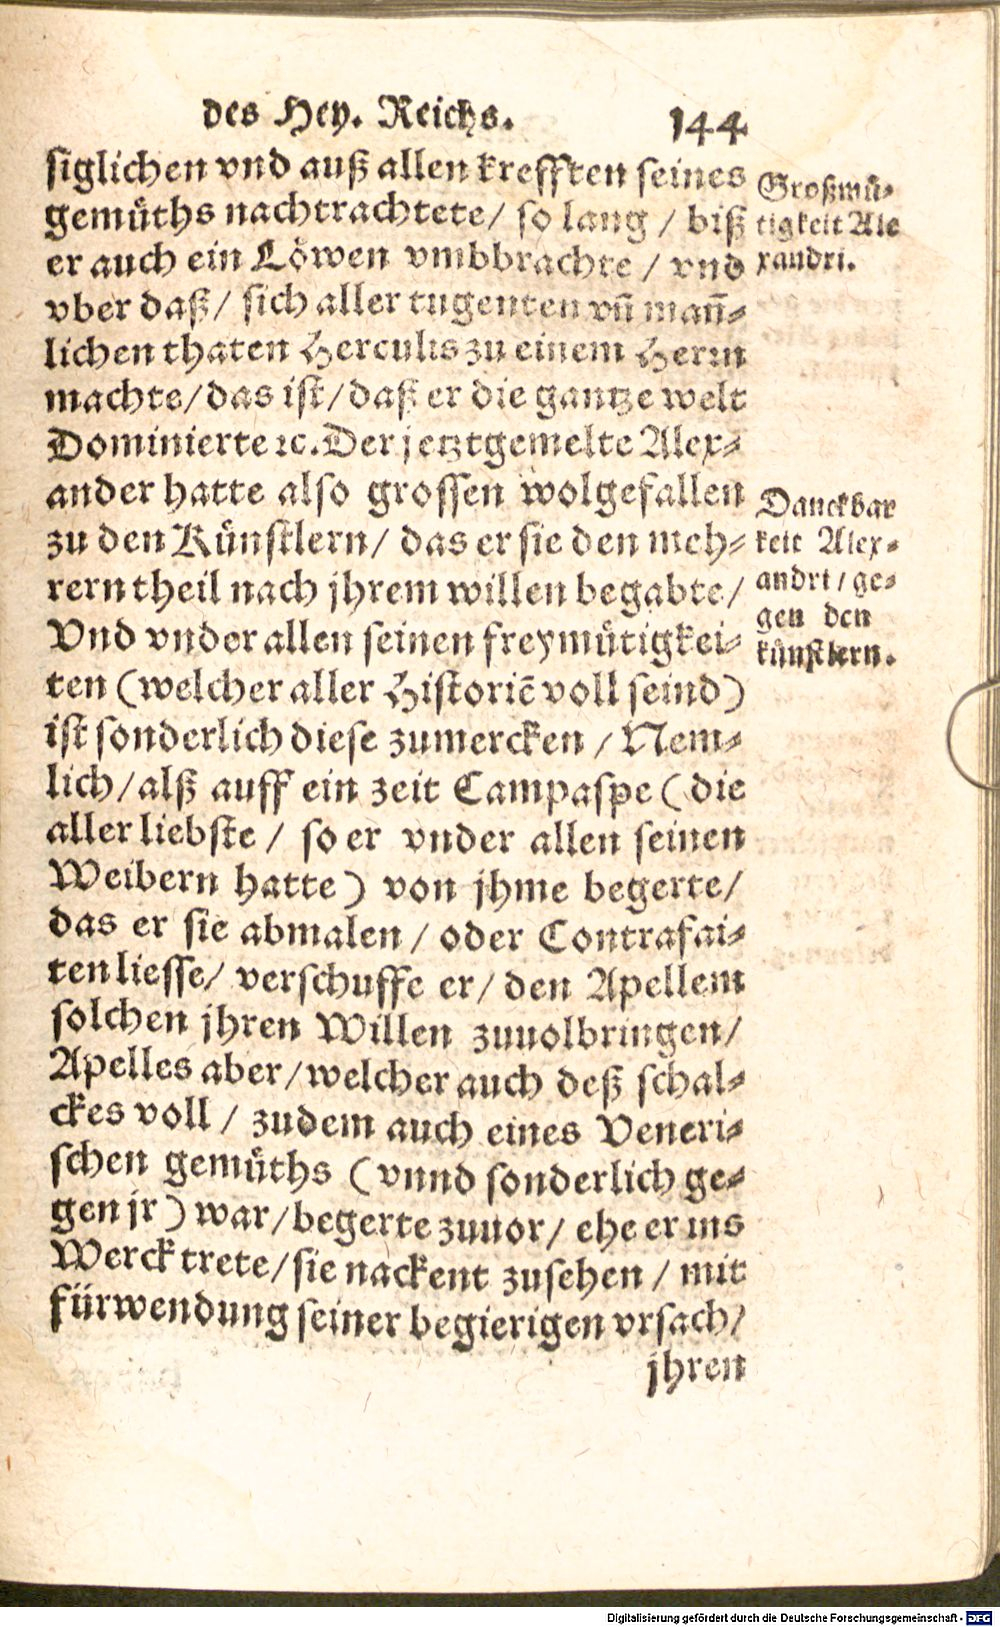 des Hey. Reichs. 144
siglichen vnd auß allen krefften seines
gemüths nachtrachtete/ so lang / biß
er auch ein Löwen vmbbrachte / vnd
vber daß/ sich aller tugenten vn̄ man̄-
lichen thaten Herculis zu einem Herrn
machte/das ist/daß er die gantze welt
Dominierte ꝛc. Der jetztgemelte Alex-
ander hatte also grossen wolgefallen
zu den Künstlern/ das er sie den meh-
rern theil nach jhrem willen begabte/
Vnd vnder allen seinen freymütigkei-
ten (welcher aller Historiē voll seind)
ist sonderlich diese zumercken / Nem-
lich/alß auff ein zeit Campaspe (die
aller liebste / so er vnder allen seinen
Weibern hatte) von jhme begerte/
das er sie abmalen / oder Contrafai-
ten liesse/ verschuffe er/ den Apellem
solchen jhren Willen zuuolbringen/
Apelles aber/welcher auch deß schal-
ckes voll / zudem auch eines Veneri-
schen gemüths (vnnd sonderlich ge-
gen jr) war/begerte zuuor/ ehe er ins
Werck trete/sie nackent zusehen / mit
fürwendung seiner begierigen vrsach/
jhren
Großmü-
tigkeit Ale
xandri.
Danckbar
keit Alex-
andri / ge-
gen den
künstlern.
Digitalisierung gefördert durch die Deutsche Forschungsgemeinschaft - DFG